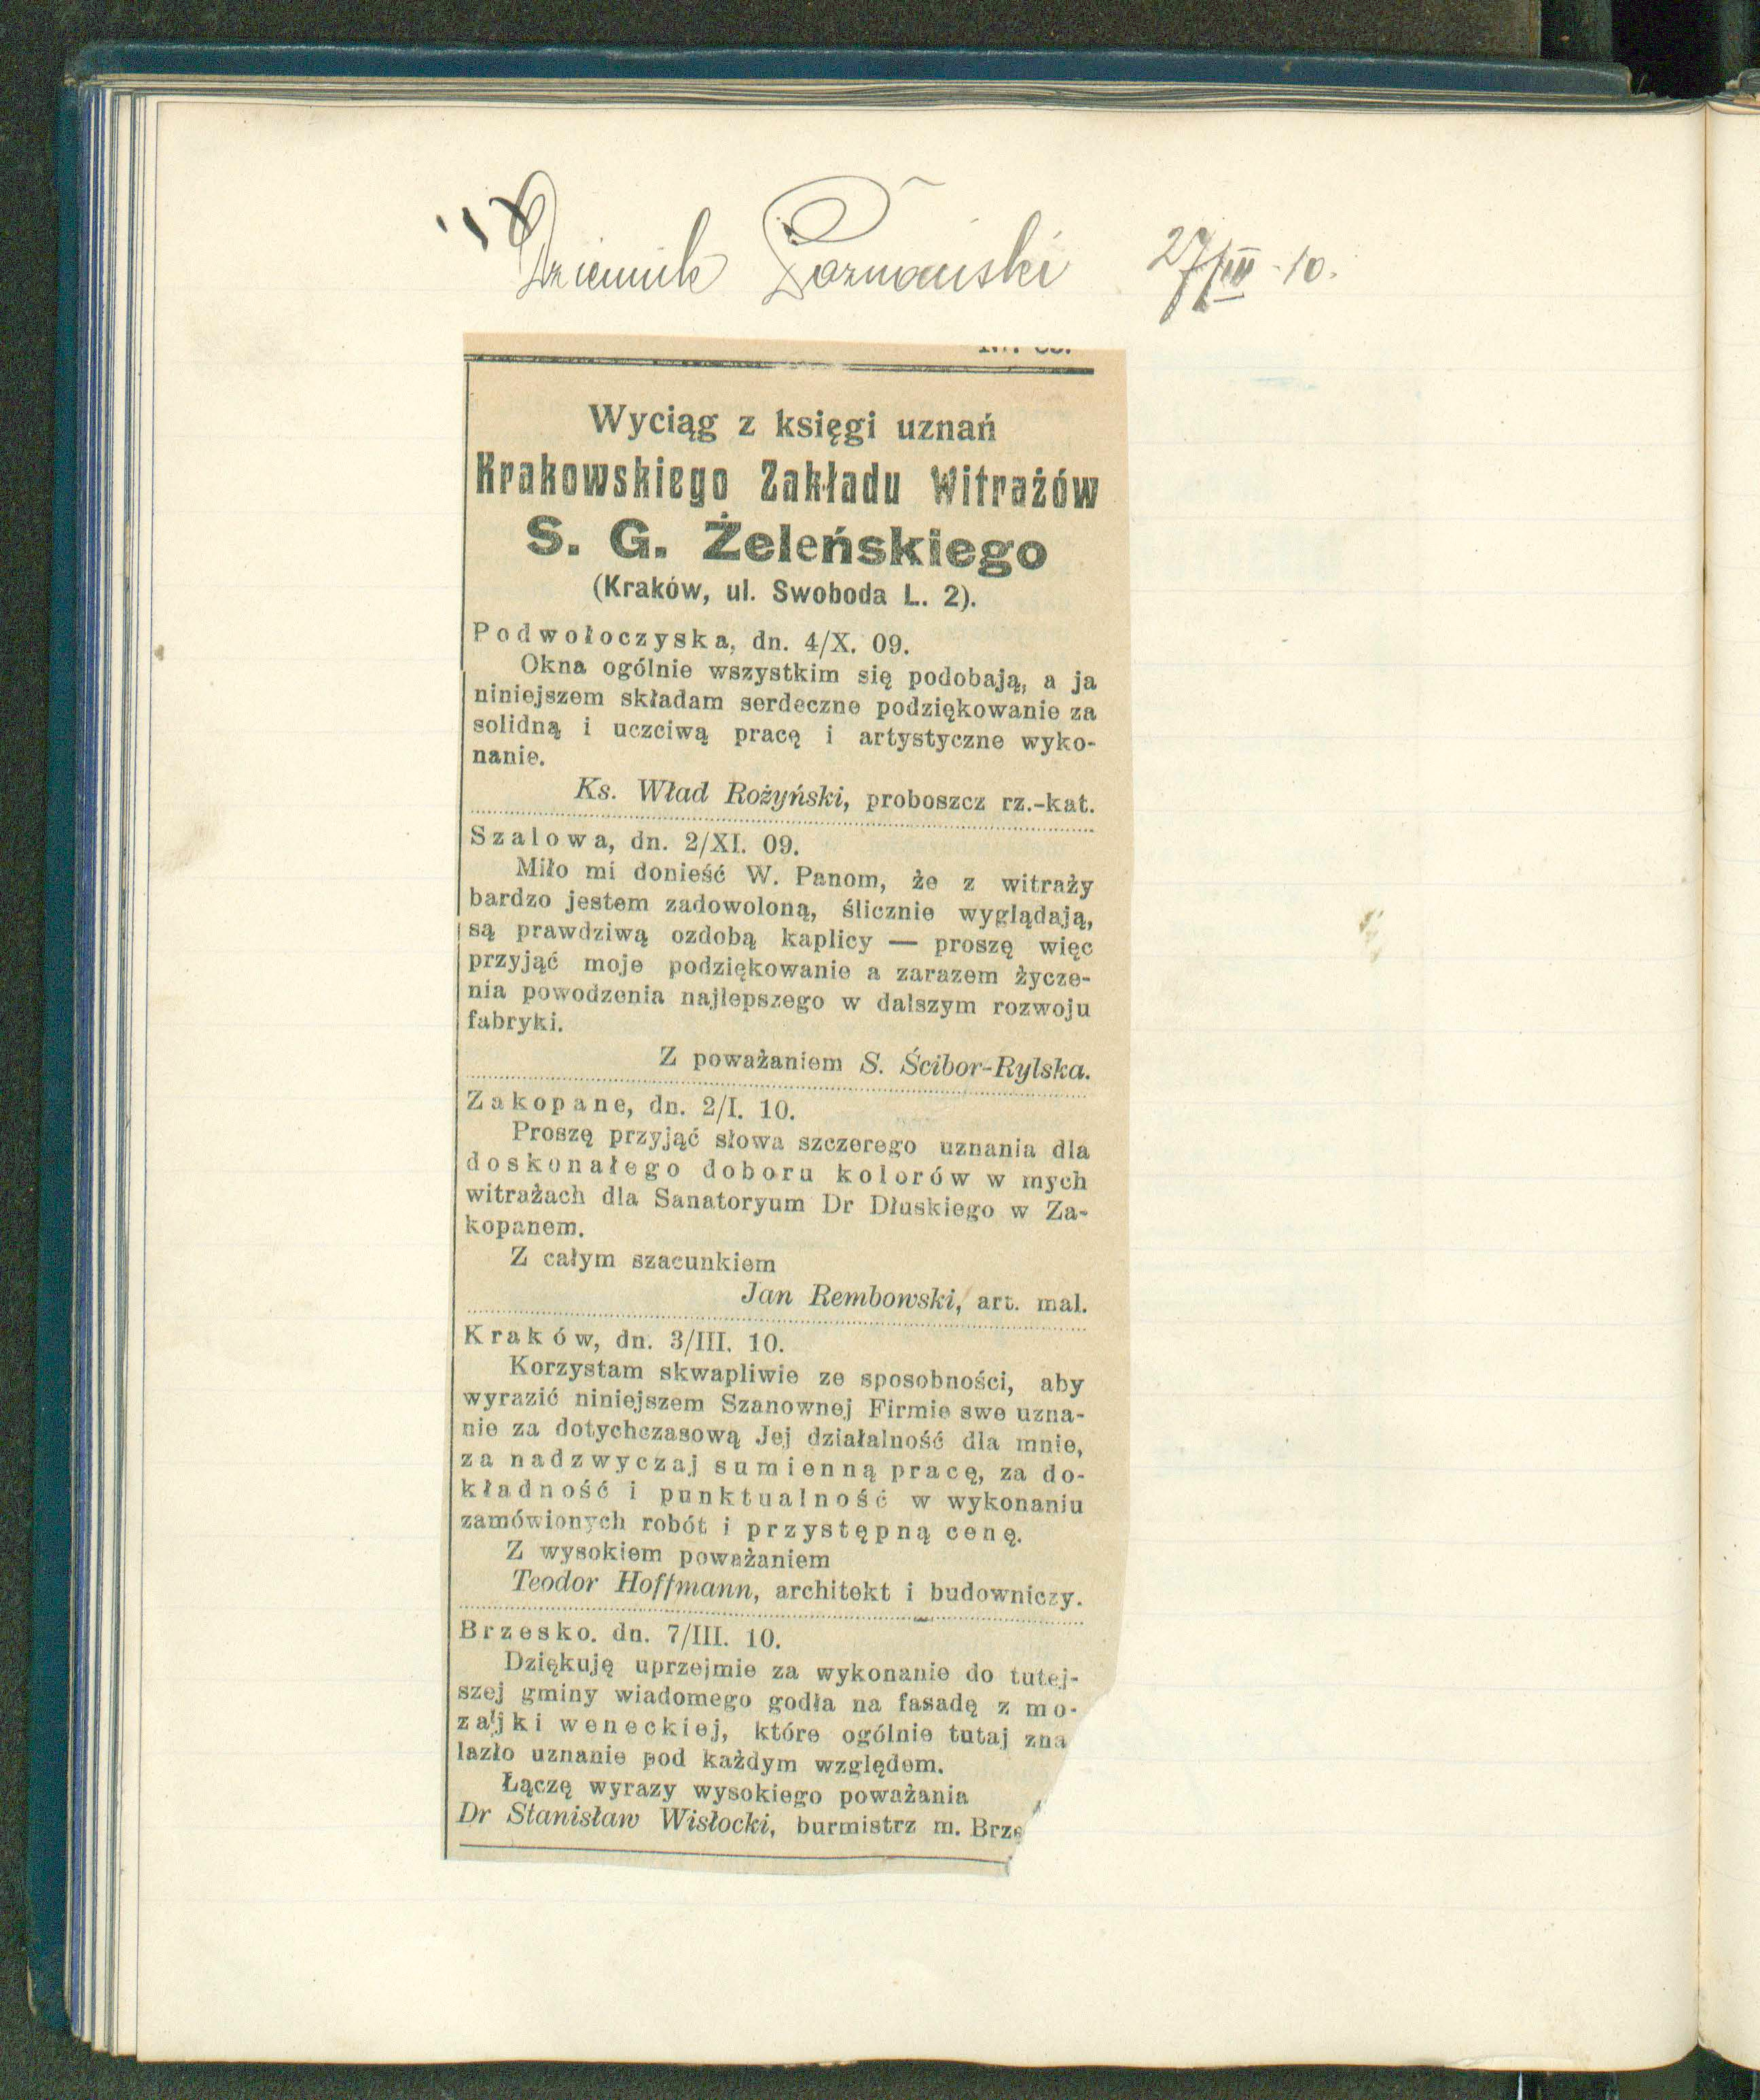 Dziennik Poznański 27/III - 10.
Wyciąg z księgi uznań
Krakowskiego Zakładu Witrażów
S. G. Żeleńskiego
(Kraków, ul. Swoboda L. 2).
Podwołoczyska, dn. 4/X. 09.
Okna ogólnie wszystkim się podobają, a ja
niniejszem składam serdeczne podziękowanie za
solidną i uczciwą pracę i artystyczne wyko-
nanie.
Ks. Wład Rożyński, proboszcz rz.-kat.
Szalowa, dn. 2/XI. 09.
Miło mi donieść W. Panom, że z witraży
bardzo jestem zadowoloną, ślicznie wyglądają,
są prawdziwą ozdobą kaplicy — proszę więc
przyjąć moje podziękowanie a zarazem życze-
nia powodzenia najlepszego w dalszym rozwoju
fabryki.
Z poważaniem S. Ścibor-Rylska.
Zakopane, dn. 2/I. 10.
Proszę przyjąć słowa szczerego uznania dla
doskonałego doboru kolorów w mych
witrażach dla Sanatoryum Dr Dłuskiego w Za-
kopanem.
Z całym szacunkiem
Jan Rembowski, art. mal.
Kraków, dn. 3/III. 10.
Korzystam skwapliwie ze sposobności, aby
wyrazić niniejszem Szanownej Firmie swe uzna-
nie za dotychczasową Jej działalność dla mnie,
za nadzwyczaj sumienną pracę, za do-
kładność i punktualność w wykonaniu
zamówionych robót i przystępną cenę.
Z wysokiem poważaniem
Teodor Hoffmann, architekt i budowniczy.
Brzesko. dn. 7/III. 10.
Dziękuję uprzejmie za wykonanie do tutej-
szej gminy wiadomego godła na fasadę z mo-
zajki weneckiej, które ogólnie tutaj zna
lazło uznanie pod każdym względem.
Łączę wyrazy wysokiego poważania
Dr Stanisław Wisłocki, burmistrz m. Brze